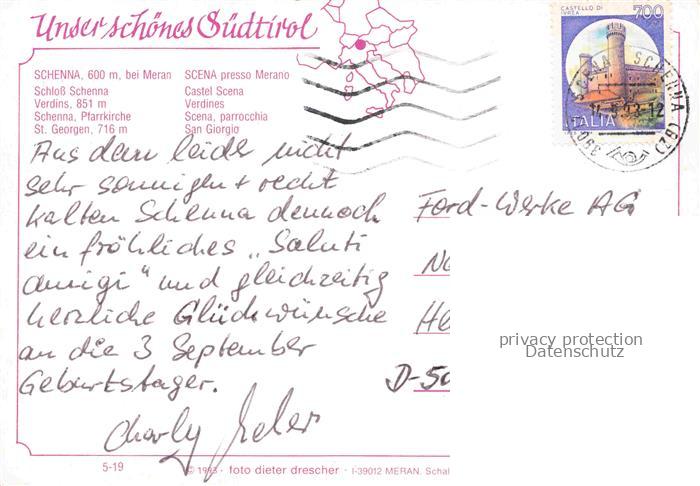 Unser schönes Südtirol
SCHENNA, 600 m, bei Meran
Schloß Schenna
Verdins, 851 m
Schenna, Pfarrkirche
St. Georgen, 716 m
SCENA presso Merano
Castel Scena
Verdines
Scena, parrocchia
San Giorgio
CASTELLO DI
IVREA
700
ITALIA
SCENA SCHENNA (BZ)
Aus dem leider nicht
sehr sonnigen + recht
kalten Schenna dennoch
ein fröhliches „Saluti
amigi" und gleichzeitig
herzliche Glückwünsche
an die 3 September
Geburtstager.
Charly
Ford-Werke AG
He
D-50
privacy protection
Datenschutz
5-19
© 1993 · foto dieter drescher · I-39012 MERAN. Schal